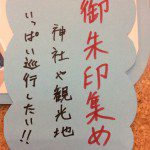 御朱印集め
神社や観光地
いっぱい巡行したい!!